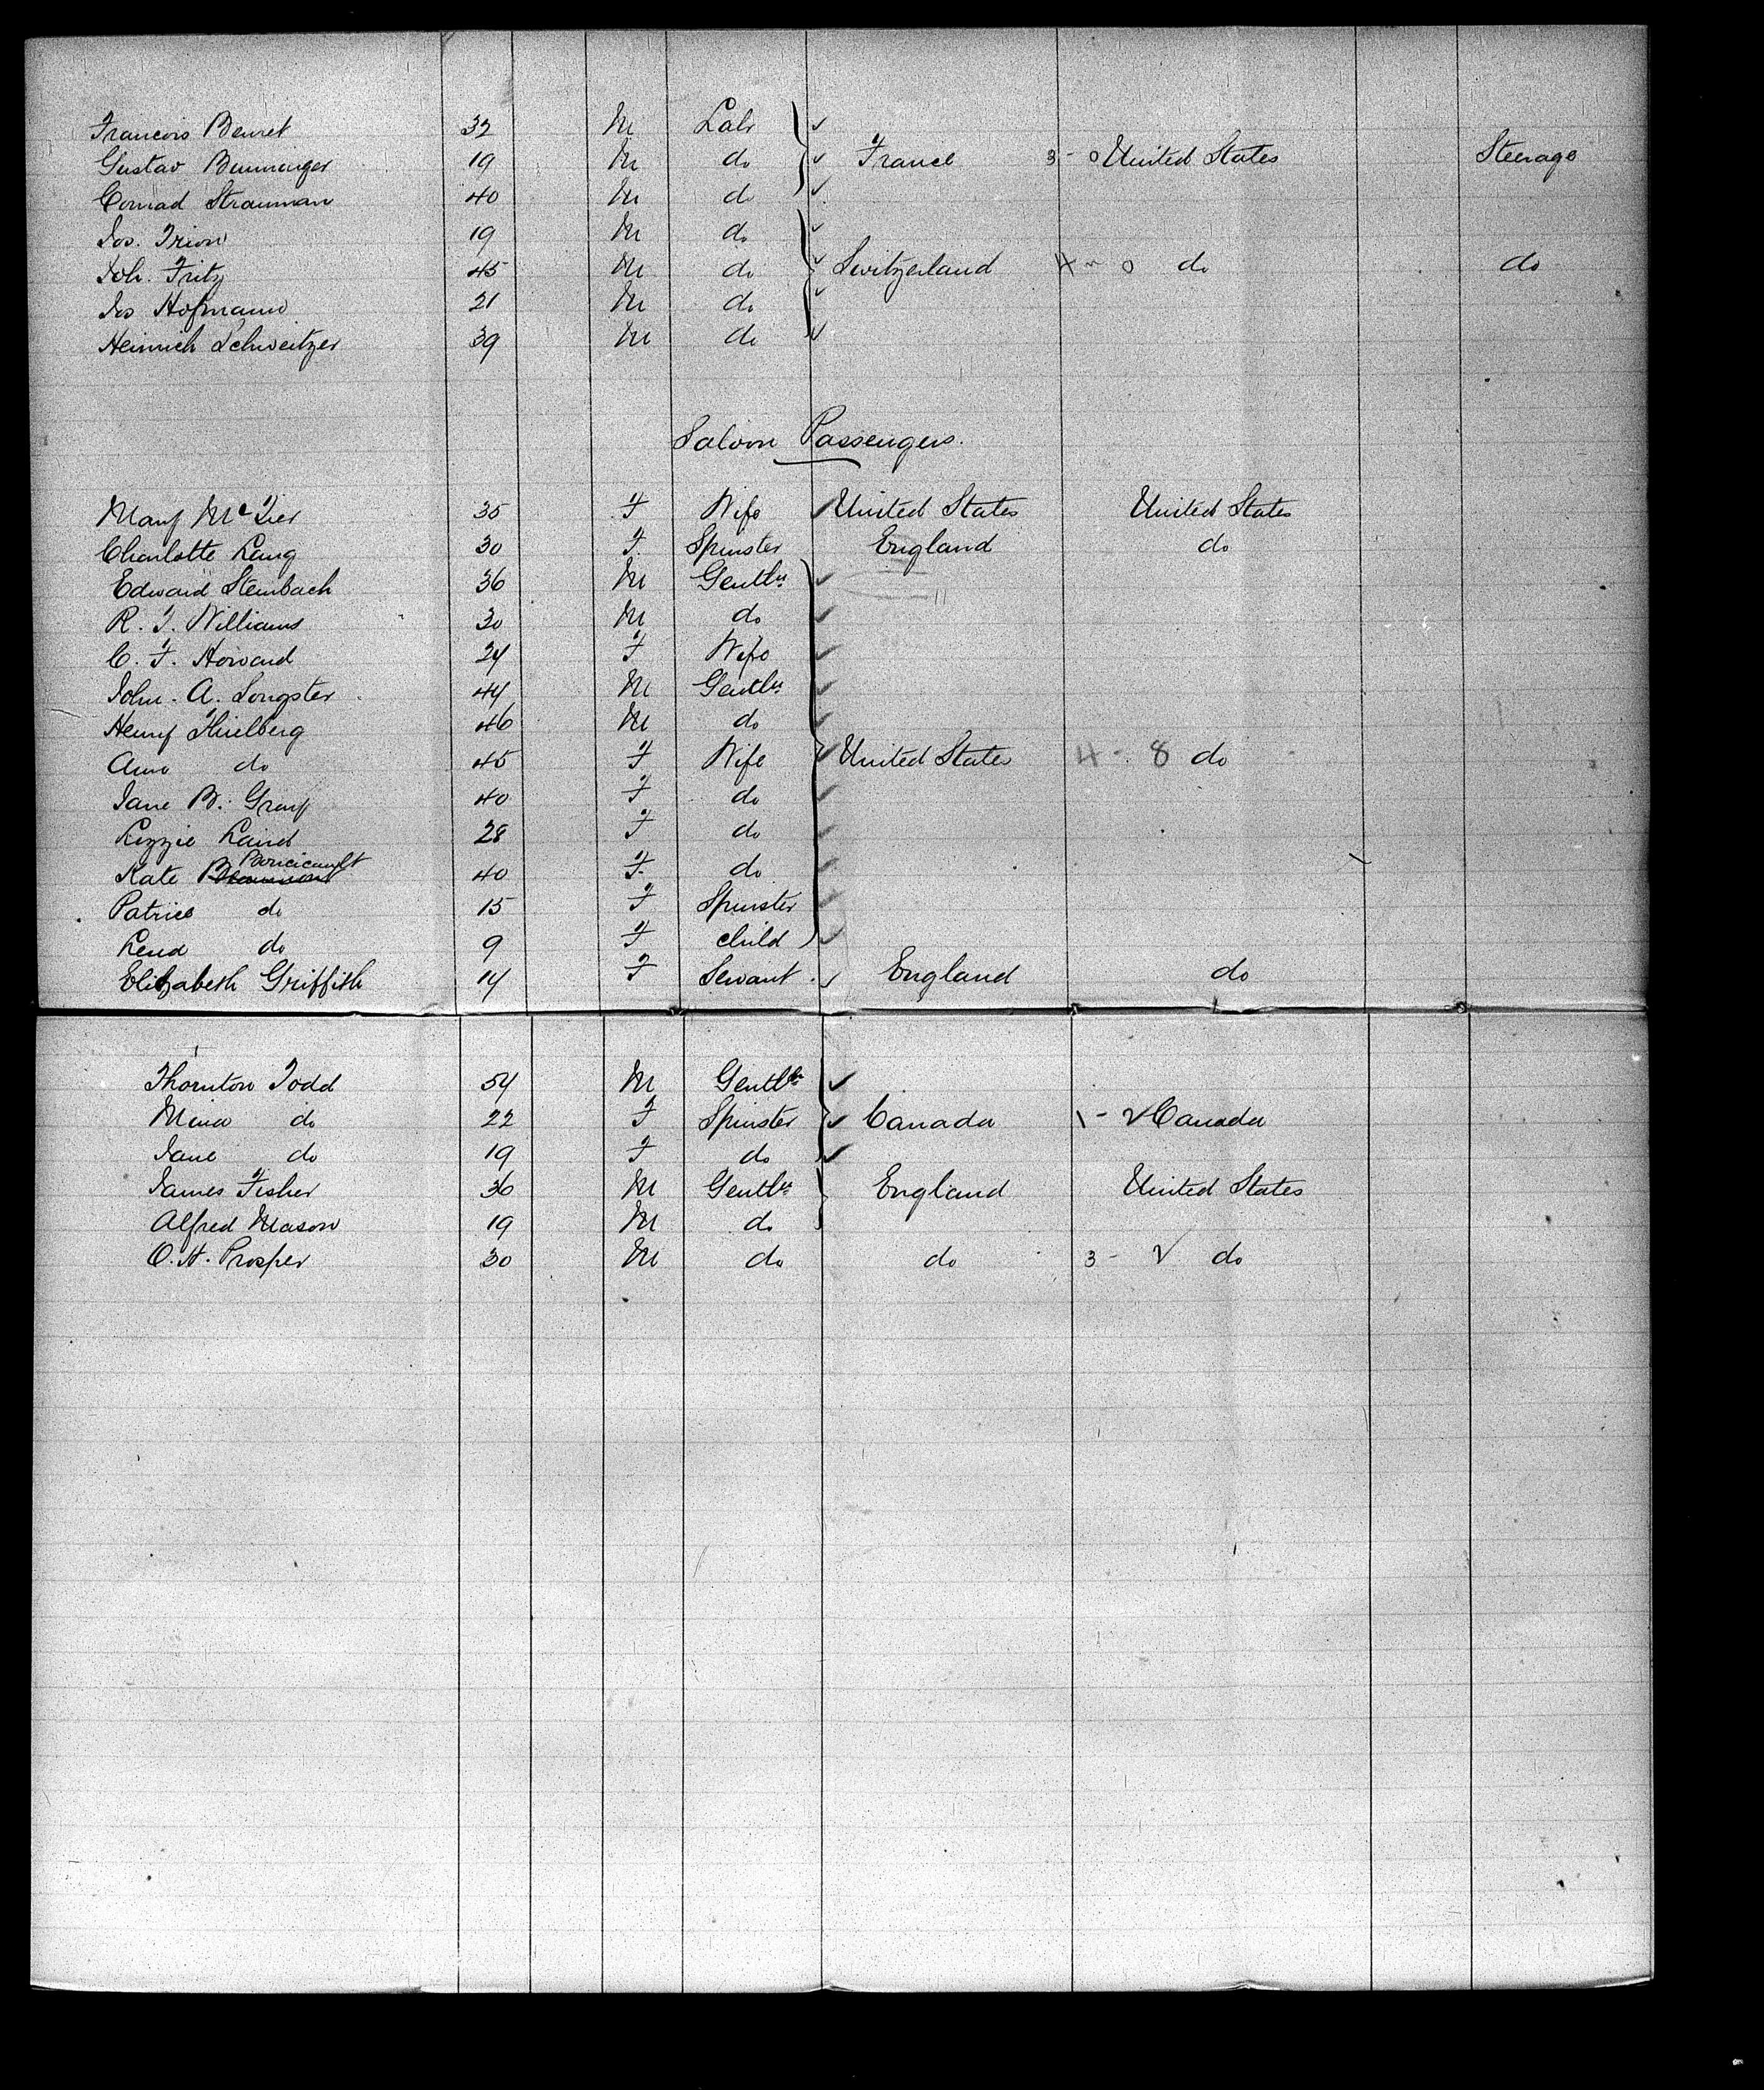 Francois Beuret 32 M Labr
Gustav Bumminger 19 M do France 3 - 0 United States Steerage
Conrad Strauman 40 M do
Jos. Trion 19 M do
Joh. Fritz 45 M do Switzerland 4 - 0 do do
Jos Hofmann 21 M do
Heinrich Schweitzer 39 M do
Saloon Passengers.
Mary McTier 35 F Wife United States United States
Charlotte Lang 30 F. Spinster England do
Edward Steinbach 36 M Gentln
R. J. Williams 30 M do
C. F. Howard 24 F Wife
John. A. Longster 44 M Gentln
Henry Thielberg 46 M do
Ann do 45 F Wife United States 4 - 8 do
Jane B. Gray 40 F do
Lizzie Laird 28 F do
Boucicault
Kate Beaumont 40 F. do
Patrice do 15 F Spinster
Lena do 9 F child
Elizabeth Griffith 14 F Servant England do
Thornton Todd 54 M Gentln
Mina do 22 F Spinster Canada 1 - 2 Canada
Jane do 19 F do
James Fisher 36 M Gentln England United States
Alfred Mason 19 M do
O. H. Prosper 30 M do do 3 - 2 do